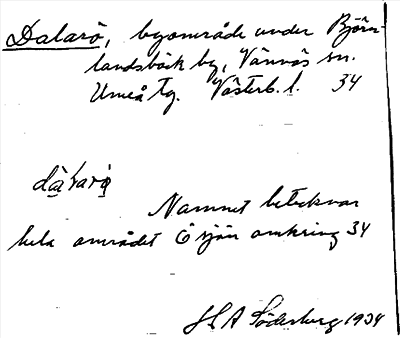 Dalarö, byområde under Björn-
landsbäck by, Vännäs sn.
Umeå tg. Västerb. l. 34
Namnet betecknar
hela området Ö sjön omkring 34
H A Söderberg 1934